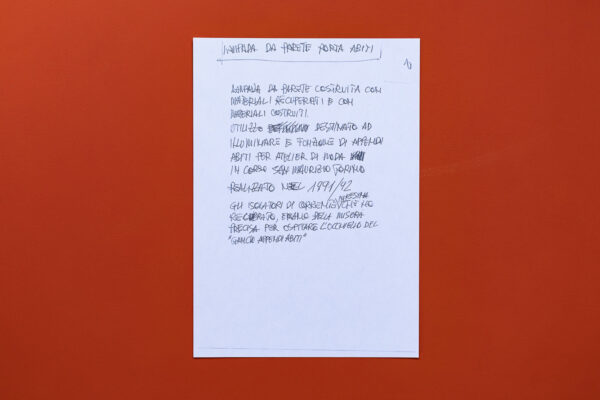 LAMPADA DA PARETE PORTA ABITI
LAMPADA DA PARETE COSTRUITA CON
MATERIALI RECUPERATI E CON
MATERIALI COSTRUITI.
UTILIZZO DESTINATO AD
ILLUMINARE E FUNZIONE DI APPENDI
ABITI PER ATELIER DI MODA
IN CORSO SAN MAURIZIO TORINO
REALIZZATO NEL 1991/92
GLI ISOLATORI DI CORRENTE CHE HO
RECUPERATO, ERANO DELLA MISURA
PRECISA PER OSPITARE L'OCCHIELLO DEL
"GANCIO APPENDI ABITI"